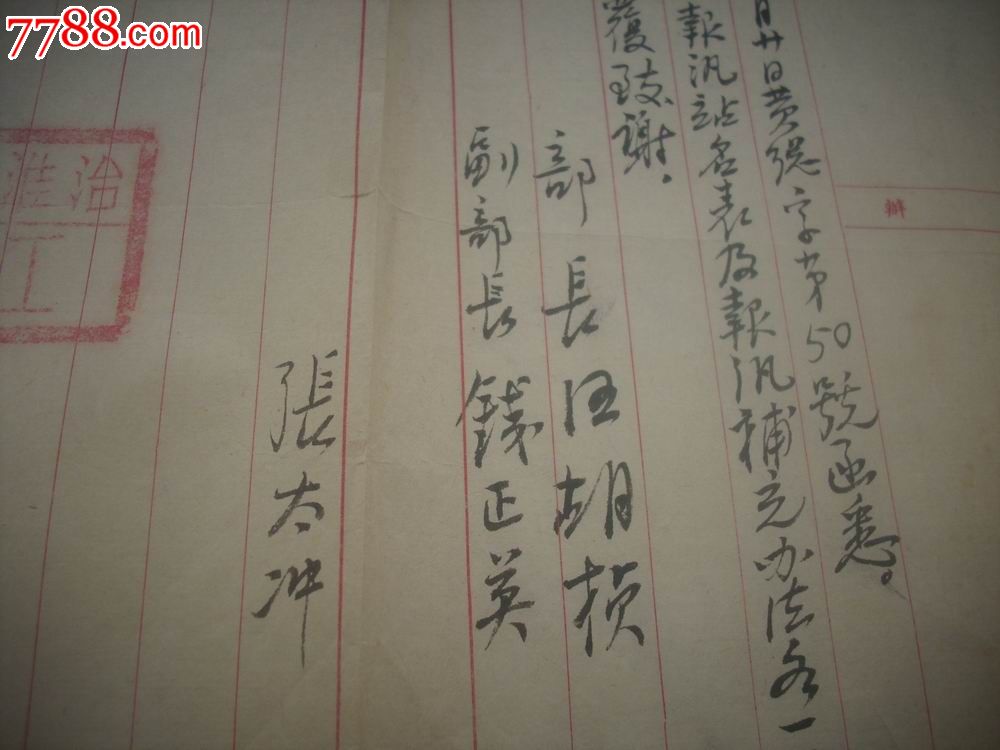 7788.com
月廿日黄總字第50號函悉。
報汛站名表及報汛補充办法各一
覆致謝。
部長汪胡楨
副部長錢正英
張太冲
治淮
工
辦